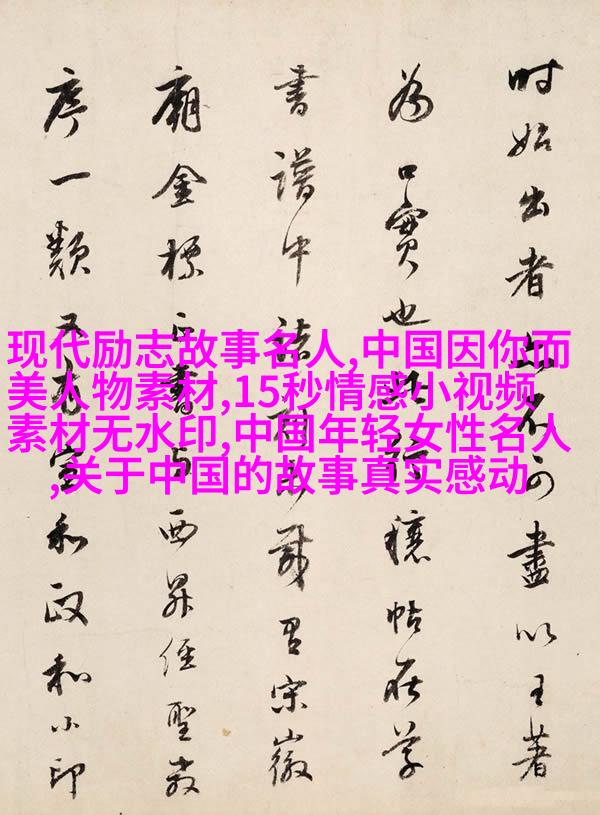 现代励志故事名人,中国因你而
美人物素材,15秒情感小视频
素材无水印,中国年轻女性名人
,关于中国的故事真实感动
时始出者不可盡以王著
為口實也帖在學
書譜中宋徽
廟金標書与西昇經聖教
序一類有宣和政和小印